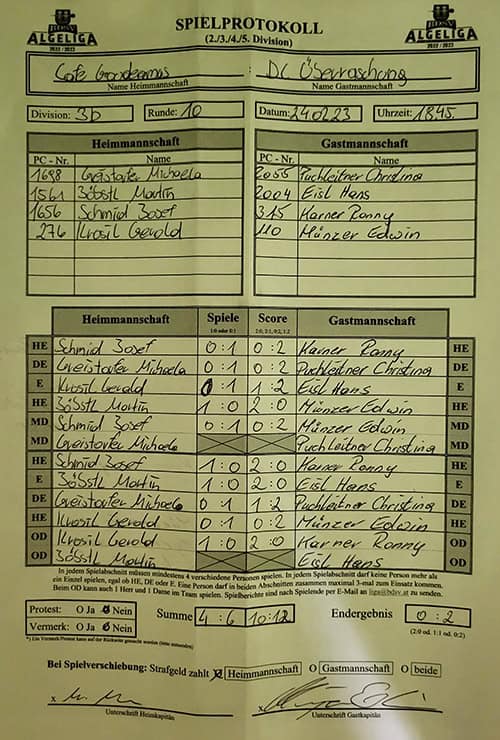 ALGELIGA
2022 / 2023
SPIELPROTOKOLL
(2./3./4./5. Division)
ALGELIGA
2022 / 2023
Cafe Grandeamos DC Überraschung
Name Heimmannschaft Name Gastmannschaft
Division: 3b Runde: 10 Datum: 24.02.23 Uhrzeit: 18.45
Heimmannschaft Gastmannschaft
PC - Nr. Name PC - Nr. Name
1698 Greistorfer Michaela 2055 Puchleitner Christina
1561 Böbstl Martin 2004 Eisl Hans
1656 Schmid Josef 315 Karner Ronny
276 Krosil Gerold 110 Münzer Edwin
Heimmannschaft Spiele Score Gastmannschaft
1:0 or 0:1 2:0, 2:1, 0:2, 1:2
HE Schmid Josef 0:1 0:2 Karner Ronny HE
DE Greistorfer Michaela 0:1 0:2 Puchleitner Christina DE
E Krosil Gerold 0:1 1:2 Eisl Hans E
HE Böbstl Martin 1:0 2:0 Münzer Edwin HE
MD Schmid Josef 0:1 0:2 Münzer Edwin MD
MD Greistorfer Michaela Puchleitner Christina MD
HE Schmid Josef 1:0 2:0 Karner Ronny HE
E Böbstl Martin 1:0 2:0 Eisl Hans E
DE Greistorfer Michaela 0:1 1:2 Puchleitner Christina DE
HE Krosil Gerold 0:1 0:2 Münzer Edwin HE
OD Krosil Gerold 1:0 2:0 Karner Ronny OD
OD Böbstl Martin Eisl Hans OD
In jedem Spielabschnitt müssen mindestens 4 verschiedene Personen spielen. In jedem Spielabschnitt darf keine Person mehr als
ein Einzel spielen, egal ob HE, DE oder E. Eine Person darf in beiden Abschnitten zusammen maximal 3-mal zum Einsatz kommen.
Beim OD kann auch 1 Herr und 1 Dame im Team spielen. Spielberichte sind nach Spielende per E-Mail an liga@bdsv.at zu senden.
Protest: O Ja O Nein Summe 4:6 10:12 Endergebnis 0:2
Vermerk: O Ja O Nein (2:0 od. 1:1 od. 0:2)
*) Ein Vermerk/Protest kann auf der Rückseite gemacht werden (bitte ankreuzen)
Bei Spielverschiebung: Strafgeld zahlt Heimmannschaft O Gastmannschaft O beide
x x
Unterschrift Heimkapitän Unterschrift Gastkapitän